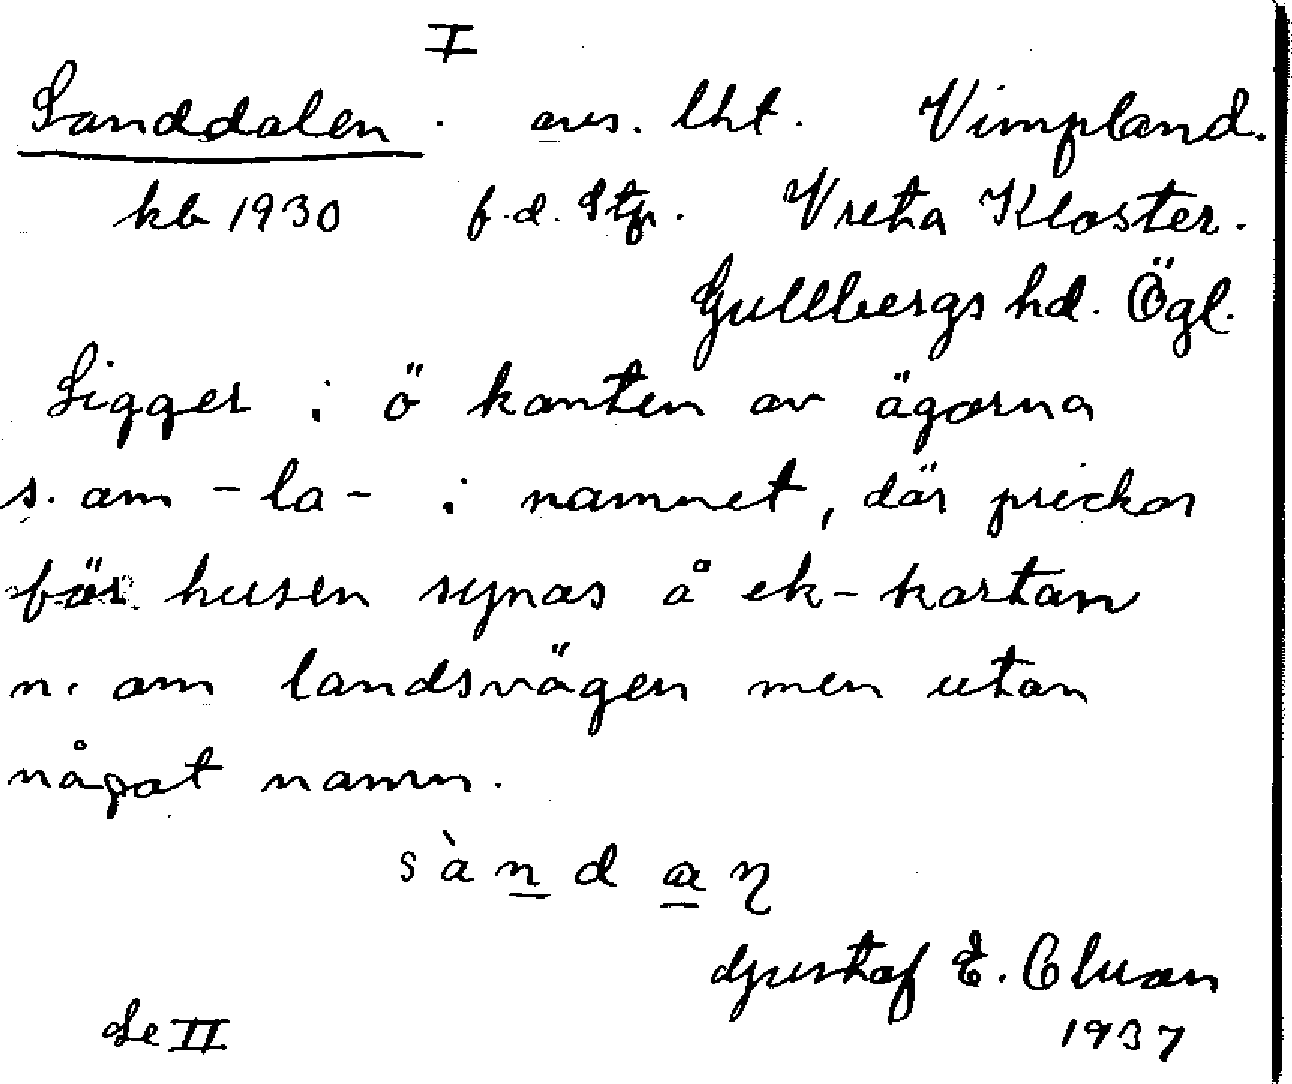 I
Sanddalen. avs. lht. Vimpland.
kb 1930 f.d. Stp. Vreta Kloster.
Gullbergs hd. Ögl.
Ligger i ö kanten av ägorna
s. om -la- i namnet, där prickar
för husen synas å ek-kartan
n. om landsvägen men utan
något namn.
sàndaꞑ
Gustaf E. Cluan
Se II 1937